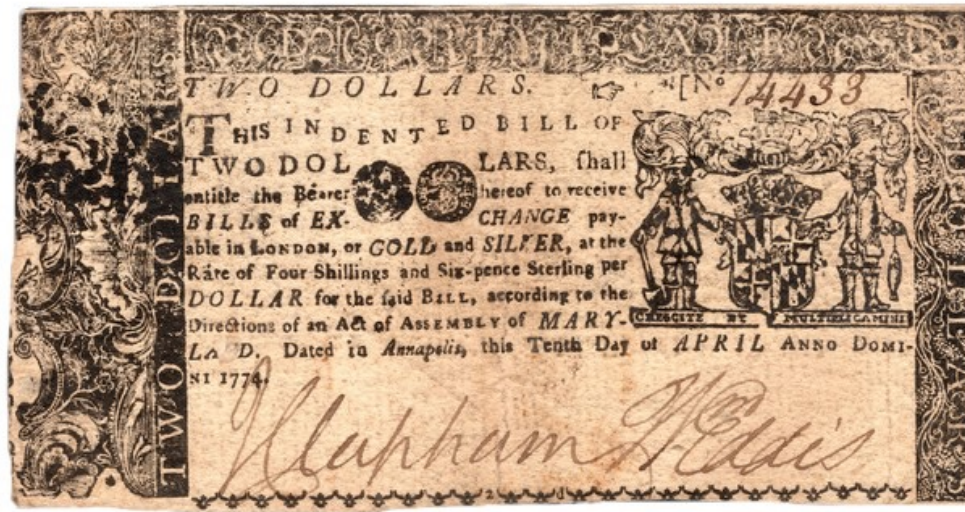 TWO DOLLARS. ☞ *[No 14433
THIS INDENTED BILL OF
TWO DOL LARS, ſhall
entitle the Bearer hereof to receive
BILLS of EX- CHANGE pay-
able in LONDON, or GOLD and SILVER, at the
Rate of Four Shillings and Six-pence Sterling per
DOLLAR for the ſaid BILL, according to the
Directions of an Act of ASSEMBLY of MARY-
LA D. Dated in Annapolis, this Tenth Day of APRIL ANNO DOMI-
NI 1774.
CRESCITE ET MULTIPLICAMINI
J Clapham Wm Eddis
TWO DOLLARS